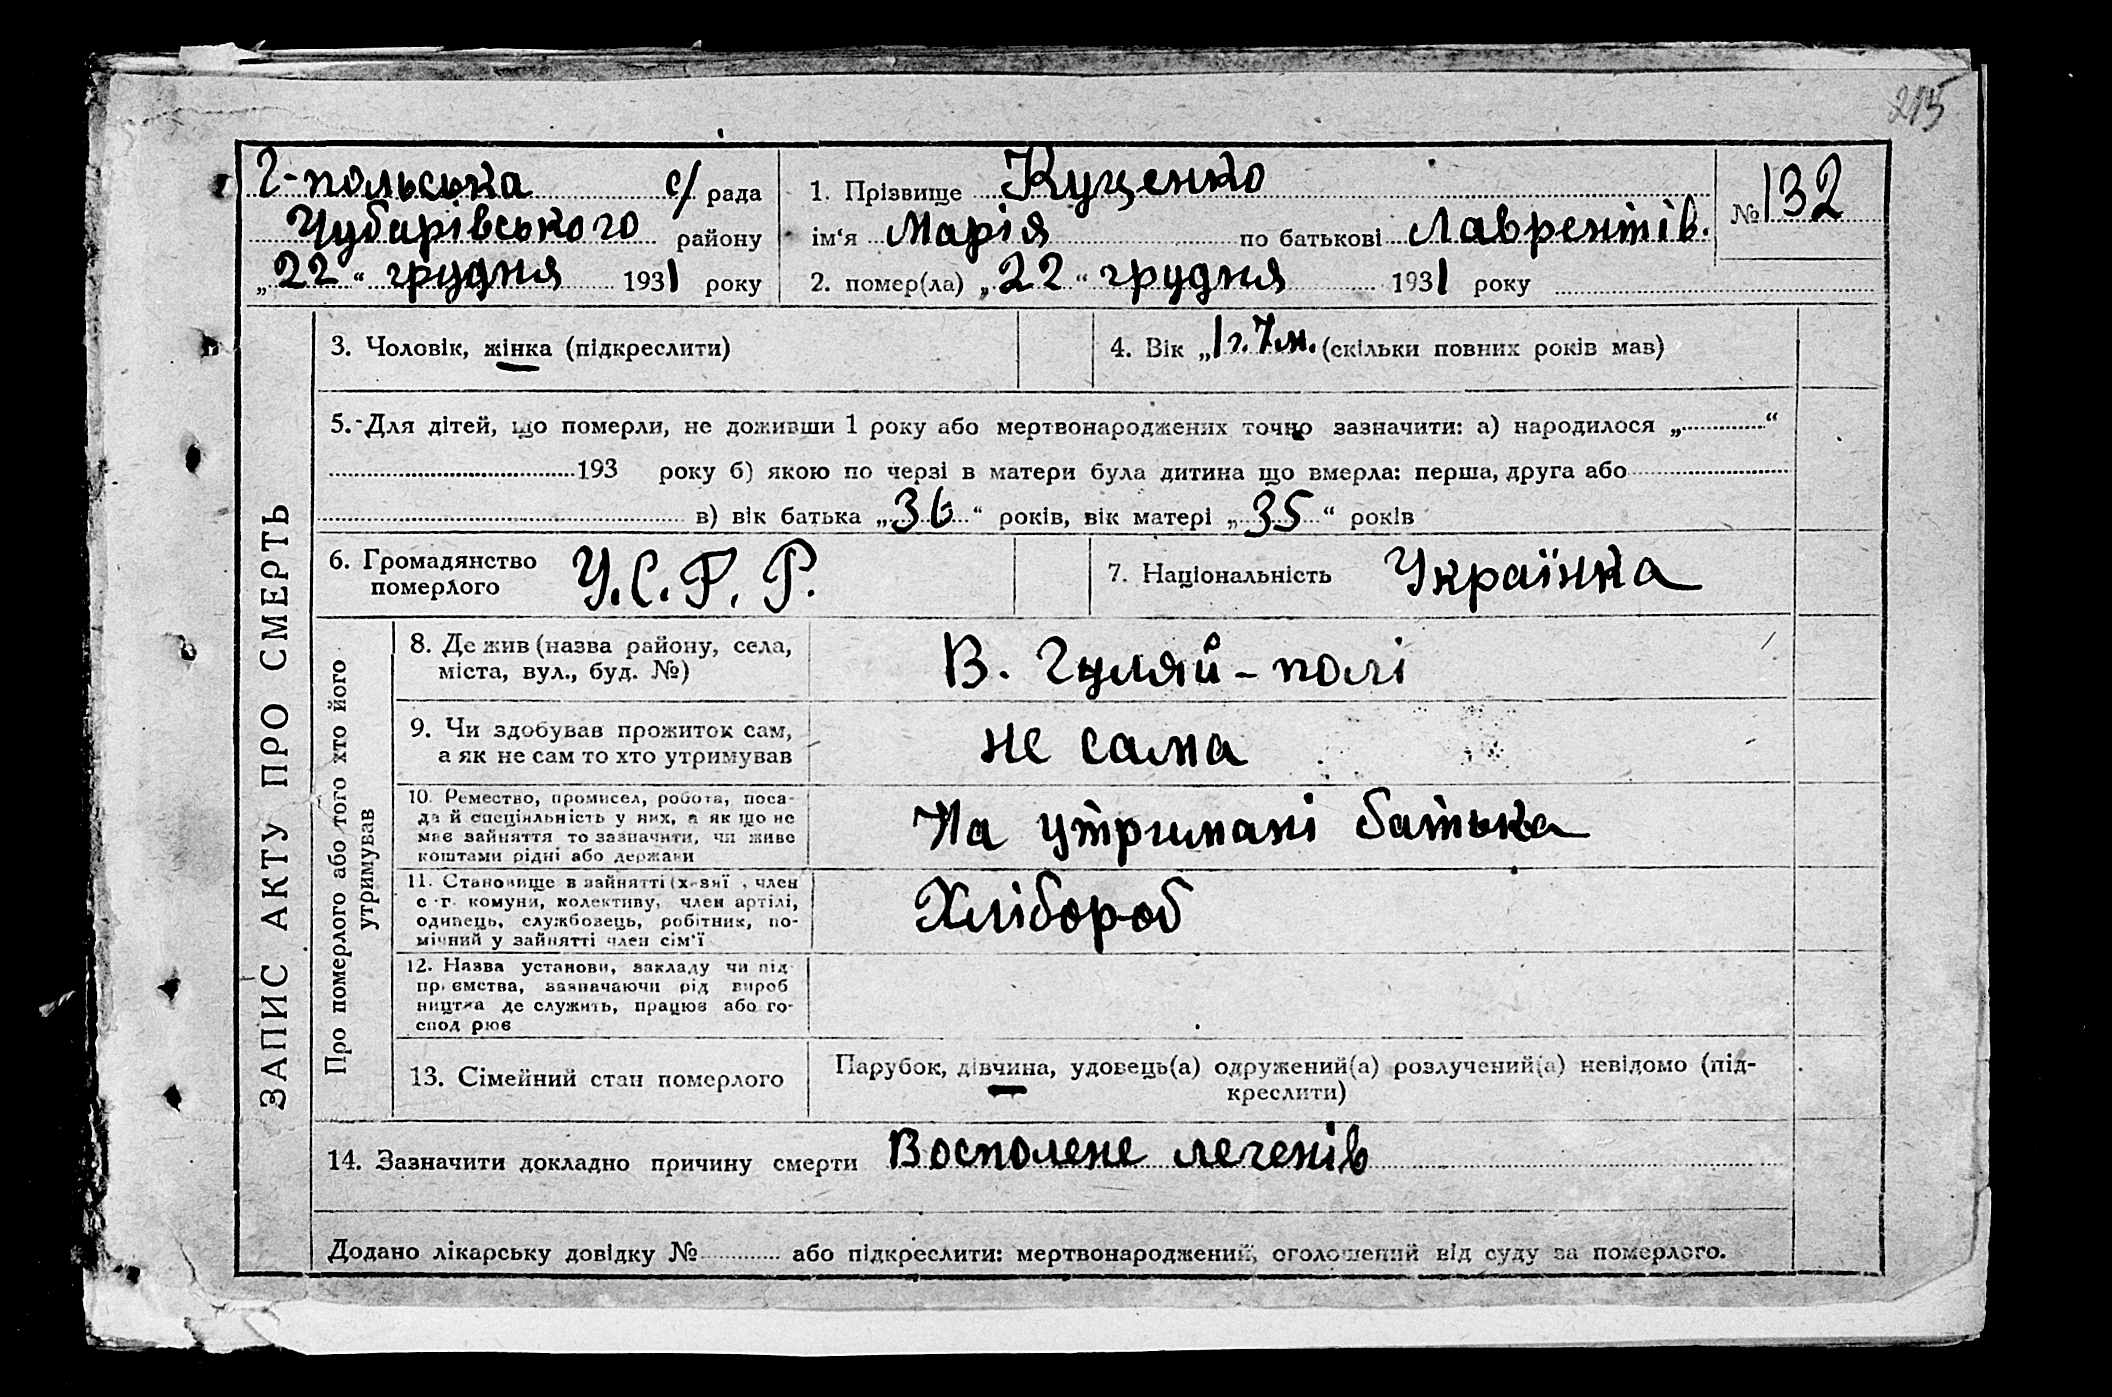 215
Г-польська с/рада
Чубарівського району
„22“ грудня 1931 року
1. Прізвище Куценко
ім‘я Марія по батькові Лаврентів.
2. помер(ла) „22“ грудня 1931 року
№ 132
ЗАПИС АКТУ ПРО СМЕРТЬ
3. Чоловік, жінка (підкреслити)
4. Вік „1 г. 7 м. (скільки повних років мав)
5. Для дітей, що померли, не доживши 1 року або мертвонароджених точно зазначити: а) народилося „ “
193 року б) якою по черзі в матери була дитина що вмерла: перша, друга або
в) вік батька „36“ років, вік матері „35“ років
6. Громадянство
померлого
У.С.Р.Р.
7. Національність Українка
Про померлого або того хто його
утримував
8. Де жив (назва району, села,
міста, вул., буд. №)
В. Гуляй-полі
9. Чи здобував прожиток сам,
а як не сам то хто утримував
не сама
10. Ремество, промисел, робота, поса-
да й спеціяльність у них, а як що не
має зайняття то зазначити, чи живе
коштами рідні або держави
На утримані батька
11. Становище в зайнятті (х-зяї , член
с.-г. комуни, колективу, член артілі,
одинець, службовець, робітник, по-
мічний у зайнятті член сім'ї
Хлібороб
12. Назва установи, закладу чи під-
пр. ємства, зазначаючи рід вироб
ництва де служить, працює або го-
спод рює
13. Сімейний стан померлого
Парубок, дівчина, удовець(а) одружений(а) розлучений(а) невідомо (під-
креслити)
14. Зазначити докладно причину смерти Восполене легенів
Додано лікарську довідку № або підкреслити: мертвонароджений, оголошений від суду за померлого.